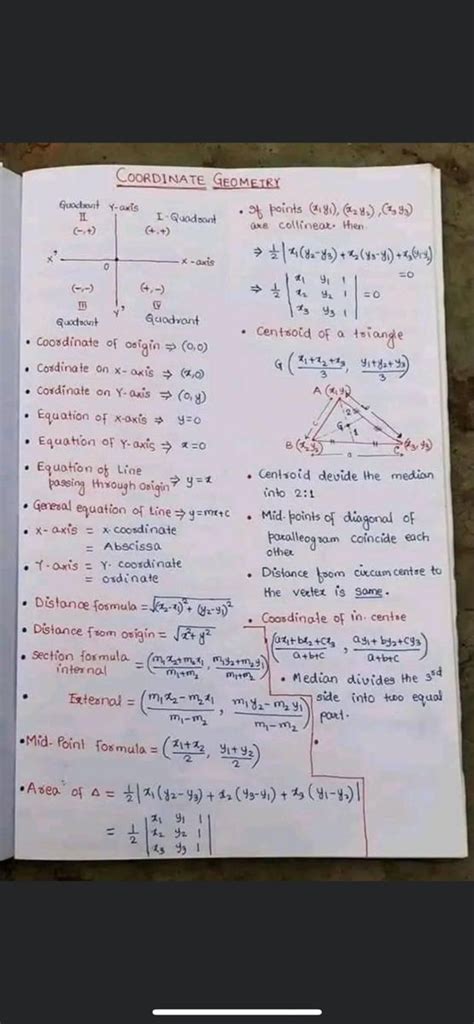 COORDINATE GEOMETRY
Quadrant Y-axis
II
(-,+)
I-Quadrant
(+,+)
X'
O
X-axis
(-,-)
III
Quadrant
Y'
(+,-)
IV
Quadrant
• Coordinate of origin ⇒ (0,0)
• Cordinate on X-axis ⇒ (x,0)
• Cordinate on Y-axis ⇒ (0,y)
• Equation of X-axis ⇒ y=0
• Equation of Y-axis ⇒ x=0
• Equation of Line
passing through origin ⇒ y=x
• General equation of Line ⇒ y=mx+c
• X-axis = x-coordinate
= Abscissa
• Y-axis = Y-coordinate
= ordinate
• Distance formula = √(x₂-x₁)²+(y₂-y₁)²
• Distance from origin = √x²+y²
• Section formula
internal = (m₁x₂+m₂x₁/m₁+m₂, m₁y₂+m₂y₁/m₁+m₂)
• External = (m₁x₂-m₂x₁/m₁-m₂, m₁y₂-m₂y₁/m₁-m₂)
• Mid-Point formula = (x₁+x₂/2, y₁+y₂/2)
• Area of Δ = 1/2|x₁(y₂-y₃)+x₂(y₃-y₁)+x₃(y₁-y₂)|
= 1/2 |x₁ y₁ 1|
|x₂ y₂ 1|
|x₃ y₃ 1|
• If points (x₁y₁), (x₂y₂), (x₃y₃)
are collinear then
⇒ 1/2|x₁(y₂-y₃)+x₂(y₃-y₁)+x₃(y₁-y₂)|
=0
⇒ 1/2 |x₁ y₁ 1|
|x₂ y₂ 1| =0
|x₃ y₃ 1|
• Centroid of a triangle
G (x₁+x₂+x₃/3, y₁+y₂+y₃/3)
A (x₁y₁)
2
G
1
B(x₂y₂)
a
C(x₃,y₃)
• Centroid devide the median
into 2:1
• Mid-points of diagonal of
paralleogram coincide each
other
• Distance from circumcentre to
the vertex is same.
• Coordinate of in-centre
(ax₁+bx₂+cx₃/a+b+c, ay₁+by₂+cy₃/a+b+c)
• Median divides the 3rd
side into two equal
part.